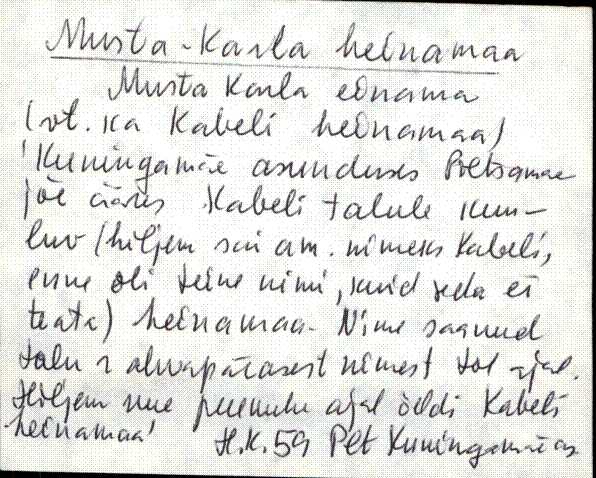 Musta-Karla heinamaa
Musta Karla einama
(vt. ka Kabeli heinamaa)
Kuningamäe asunduses Põltsamaa
jõe ääres Kabeli talule kuu-
luv (hiljem sai am. nimeks Kabeli,
enne oli teine nimi, kuid seda ei
teata) heinamaa. Nime saanud
talu algupärasest nimest tol ajal.
Hiljem uue peremehe ajal öeldi Kabeli
heinamaa! H.K. 59 Plt Kuningamäe as